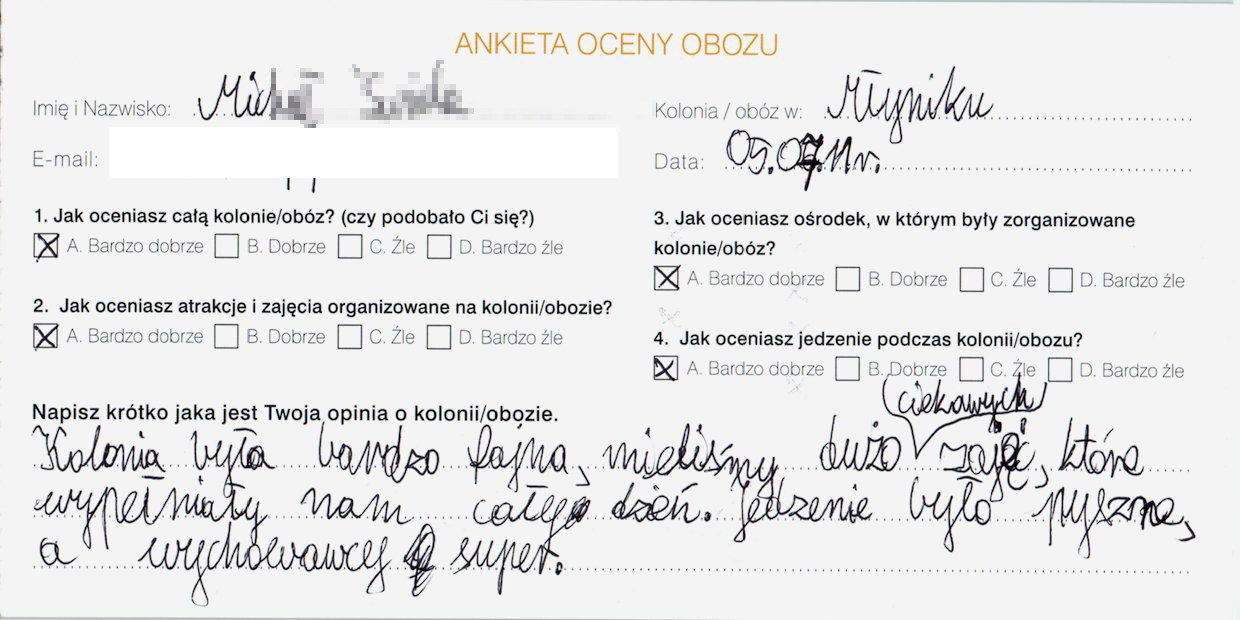 ANKIETA OCENY OBOZU
Imię i Nazwisko:
Kolonia / obóz w: Młyniku
E-mail:
Data: 05.07.11r.
1. Jak oceniasz całą kolonie/obóz? (czy podobało Ci się?)
A. Bardzo dobrze B. Dobrze C. Źle D. Bardzo źle
2. Jak oceniasz atrakcje i zajęcia organizowane na kolonii/obozie?
A. Bardzo dobrze B. Dobrze C. Źle D. Bardzo źle
3. Jak oceniasz ośrodek, w którym były zorganizowane
kolonie/obóz?
A. Bardzo dobrze B. Dobrze C. Źle D. Bardzo źle
4. Jak oceniasz jedzenie podczas kolonii/obozu?
A. Bardzo dobrze B. Dobrze C. Źle D. Bardzo źle
Napisz krótko jaka jest Twoja opinia o kolonii/obozie.
ciekawych
Kolonia była bardzo fajna, mieliśmy dużo zajęć, które
wypełniały nam cały dzień. Jedzenie było pyszne,
a wychowawcy super.